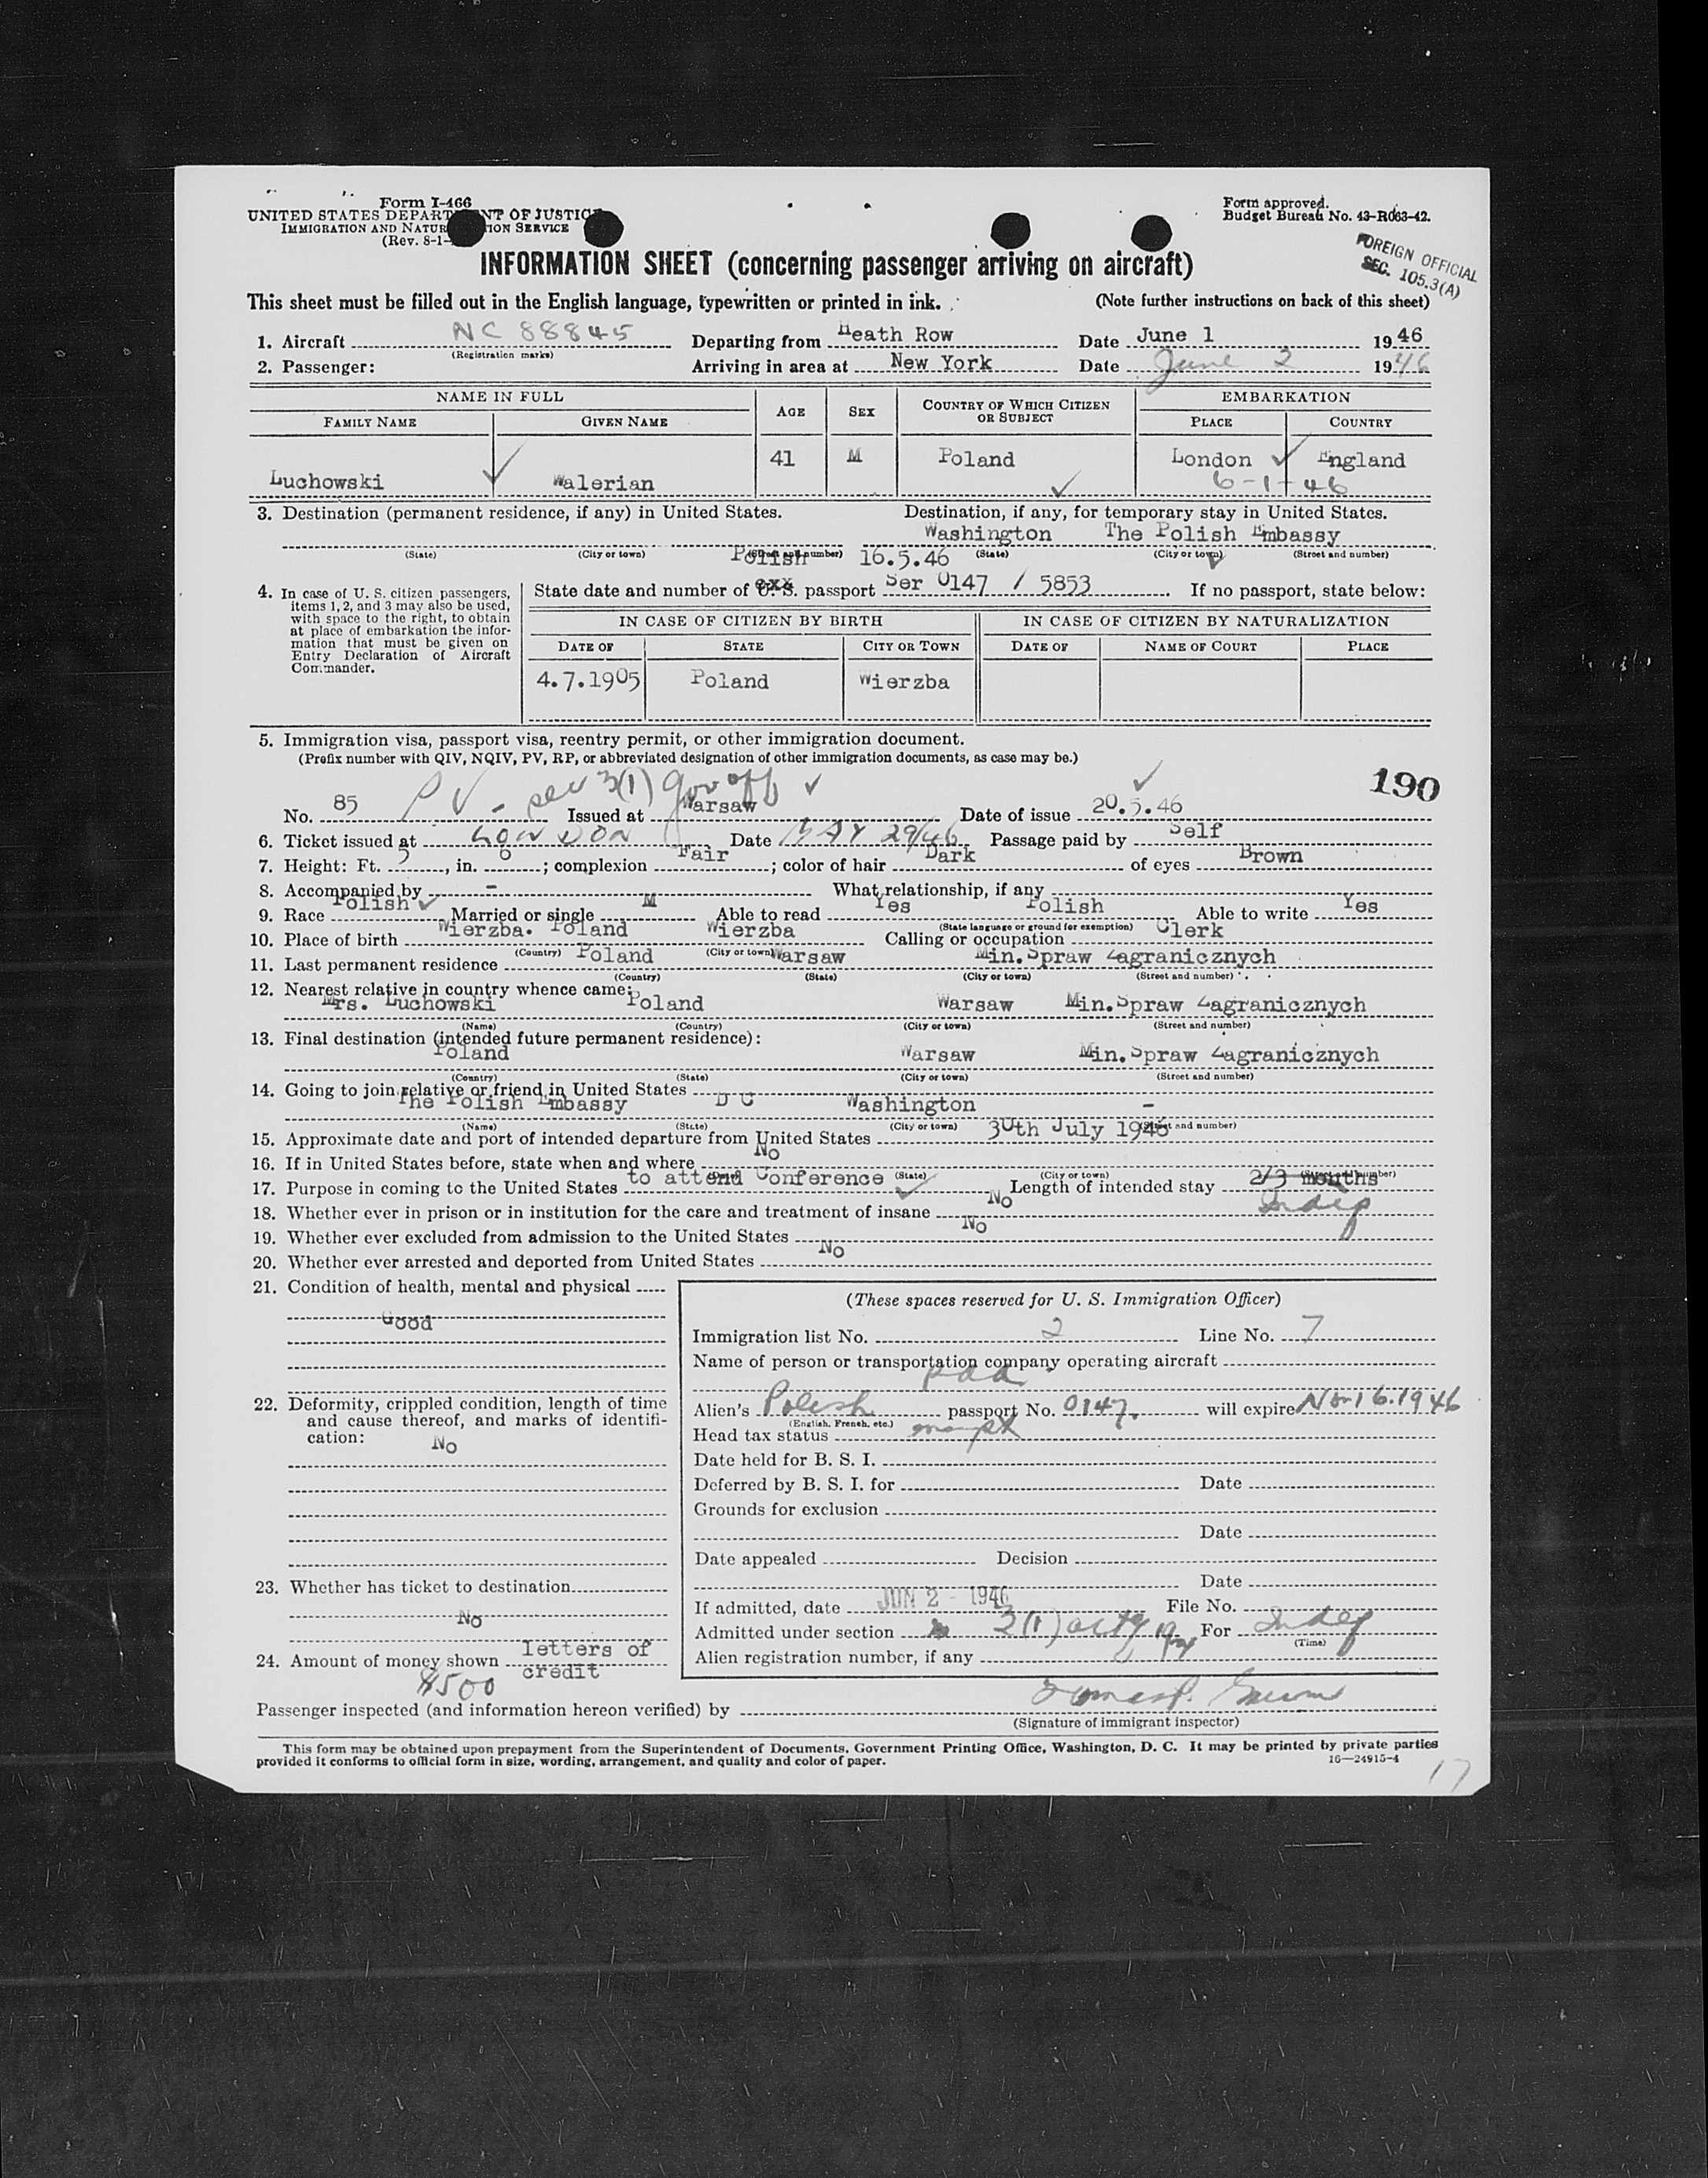 Form I-466
UNITED STATES DEPARTMENT OF JUSTICE
IMMIGRATION AND NATURALIZATION SERVICE
(Rev. 8-1-
Form approved.
Budget Bureau No. 43-R063-42.
FOREIGN OFFICIAL
SEC. 105.3(A)
INFORMATION SHEET (concerning passenger arriving on aircraft)
This sheet must be filled out in the English language, typewritten or printed in ink. (Note further instructions on back of this sheet)
1. Aircraft NC 88845 Departing from Heath Row Date June 1 1946
(Registration marks)
2. Passenger: Arriving in area at New York Date June 2 1946
NAME IN FULL AGE SEX COUNTRY OF WHICH CITIZEN OR SUBJECT EMBARKATION
FAMILY NAME GIVEN NAME PLACE COUNTRY
Luchowski Walerian 41 M Poland London England
6-1-46
3. Destination (permanent residence, if any) in United States. Destination, if any, for temporary stay in United States.
Washington The Polish Embassy
(State) (City or town) (Street and number) (State) (City or town) (Street and number)
Polish 16.5.46
4. In case of U. S. citizen passengers, items 1, 2, and 3 may also be used, with space to the right, to obtain at place of embarkation the information that must be given on Entry Declaration of Aircraft Commander.
State date and number of U.S. passport Ser 0147 / 5853 If no passport, state below:
IN CASE OF CITIZEN BY BIRTH IN CASE OF CITIZEN BY NATURALIZATION
DATE OF STATE CITY OR TOWN DATE OF NAME OF COURT PLACE
4.7.1905 Poland Wierzba
5. Immigration visa, passport visa, reentry permit, or other immigration document.
(Prefix number with QIV, NQIV, PV, RP, or abbreviated designation of other immigration documents, as case may be.)
PV - sec 3(1) gov off 190
No. 85 Issued at Warsaw Date of issue 20.5.46
6. Ticket issued at LONDON Date MAY 29/46 Passage paid by Self
7. Height: Ft. 5, in. 6; complexion Fair; color of hair Dark of eyes Brown
8. Accompanied by - What relationship, if any
9. Race Polish Married or single M Able to read Yes Polish Able to write Yes
(State language or ground for exemption)
10. Place of birth Wierzba. Poland Wierzba Calling or occupation Clerk
(Country) (City or town)
11. Last permanent residence Poland Warsaw Min.Spraw Zagranicznych
(Country) (State) (City or town) (Street and number)
12. Nearest relative in country whence came:
Mrs. Luchowski Poland Warsaw Min.Spraw Zagranicznych
(Name) (Country) (City or town) (Street and number)
13. Final destination (intended future permanent residence):
Poland Warsaw Min.Spraw Zagranicznych
(Country) (State) (City or town) (Street and number)
14. Going to join relative or friend in United States
The Polish Embassy D C Washington -
(Name) (State) (City or town) (Street and number)
15. Approximate date and port of intended departure from United States 30th July 1946
16. If in United States before, state when and where No
(State) (City or town) (Street and number)
17. Purpose in coming to the United States to attend Conference Length of intended stay 2/3 months
Indef
18. Whether ever in prison or in institution for the care and treatment of insane No
19. Whether ever excluded from admission to the United States No
20. Whether ever arrested and deported from United States No
21. Condition of health, mental and physical
Good
22. Deformity, crippled condition, length of time and cause thereof, and marks of identification:
No
23. Whether has ticket to destination
No
24. Amount of money shown letters of credit
$500
(These spaces reserved for U. S. Immigration Officer)
Immigration list No. 2 Line No. 7
Name of person or transportation company operating aircraft
paa
Alien's Polish passport No. 0147. will expire Nov 16.1946
(English, French, etc.)
Head tax status
Date held for B. S. I.
Deferred by B. S. I. for Date
Grounds for exclusion
Date
Date appealed Decision
Date
If admitted, date JUN 2 - 1946 File No.
Admitted under section 3(1) For Indef
(Time)
Alien registration number, if any
Passenger inspected (and information hereon verified) by
(Signature of immigrant inspector)
This form may be obtained upon prepayment from the Superintendent of Documents, Government Printing Office, Washington, D. C. It may be printed by private parties
provided it conforms to official form in size, wording, arrangement, and quality and color of paper. 16—24915-4
17